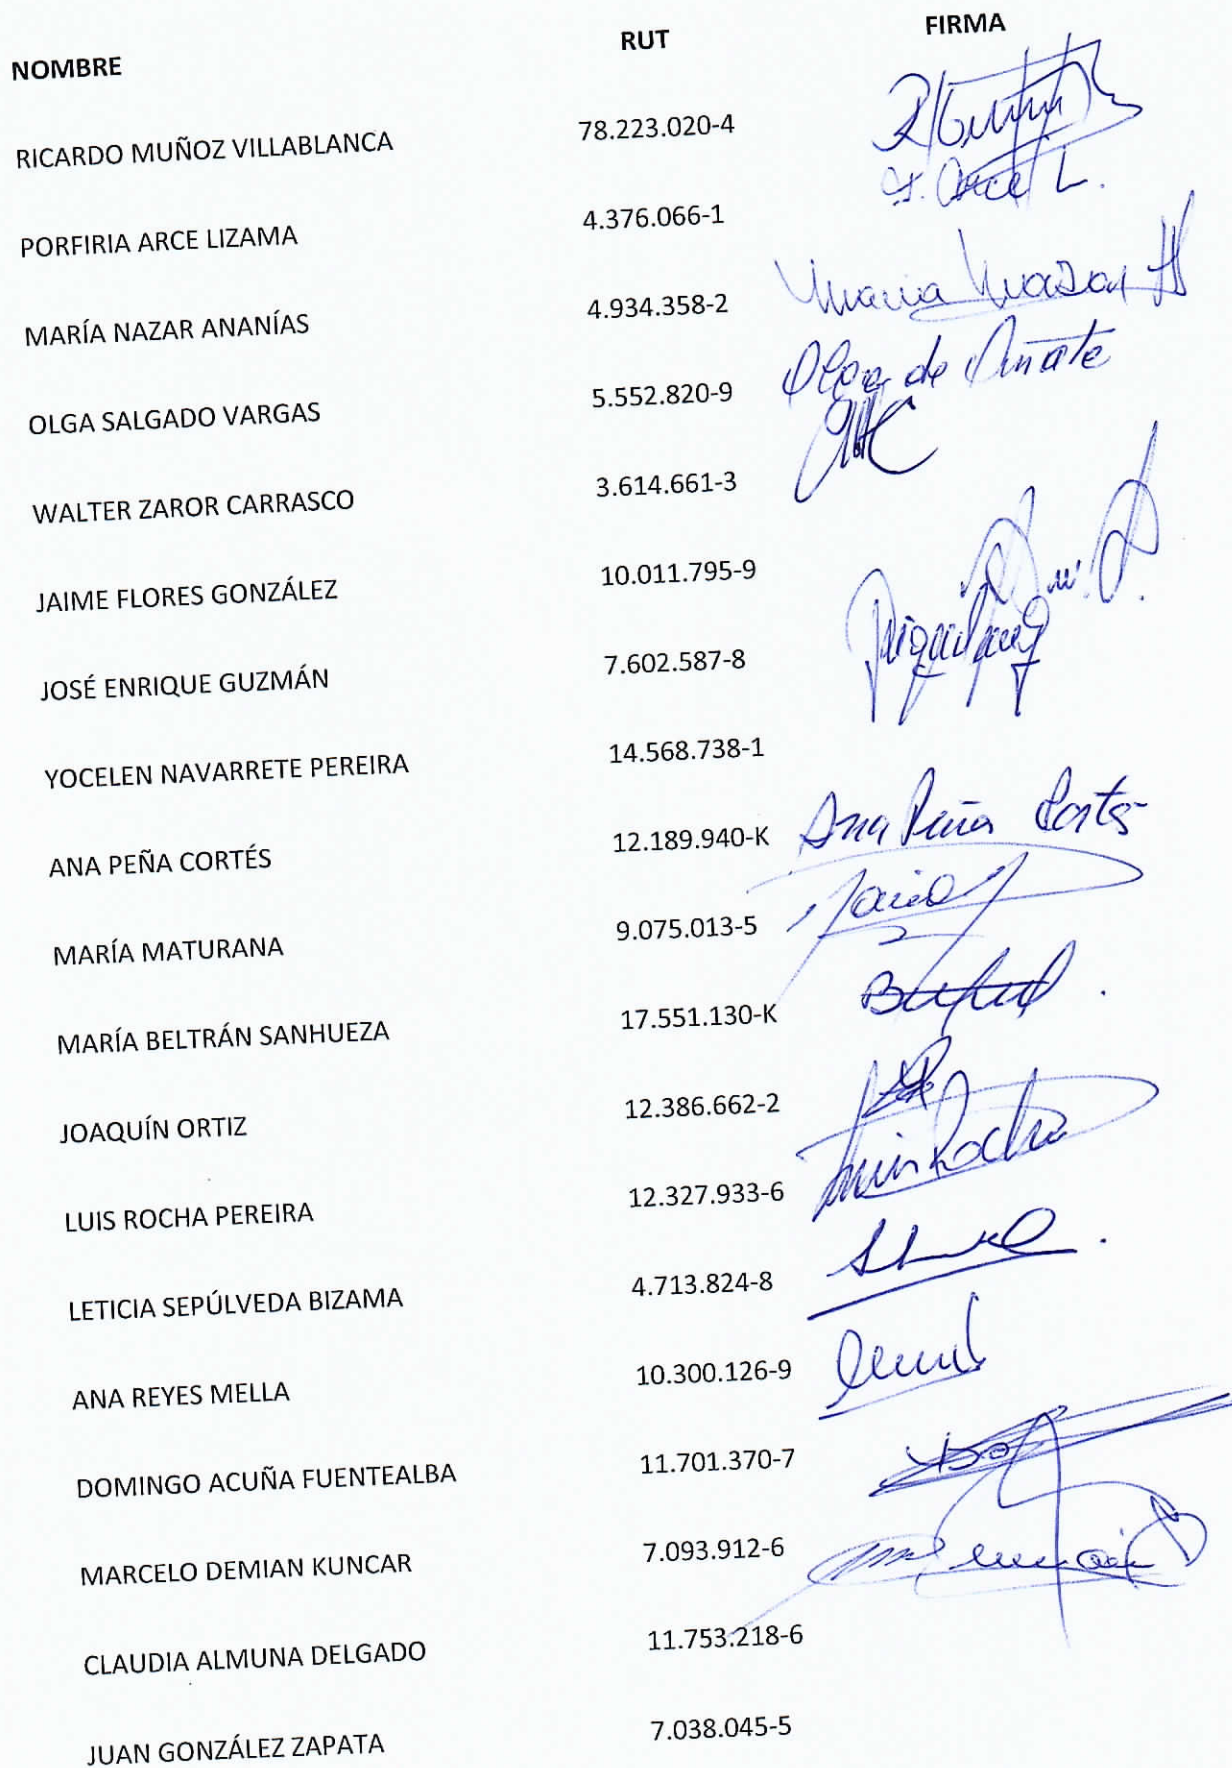 NOMBRE RUT FIRMA
RICARDO MUÑOZ VILLABLANCA 78.223.020-4
PORFIRIA ARCE LIZAMA 4.376.066-1 Arce L.
MARÍA NAZAR ANANÍAS 4.934.358-2 Maria Nazar
OLGA SALGADO VARGAS 5.552.820-9 Olga de Oñate
WALTER ZAROR CARRASCO 3.614.661-3
JAIME FLORES GONZÁLEZ 10.011.795-9
JOSÉ ENRIQUE GUZMÁN 7.602.587-8
YOCELEN NAVARRETE PEREIRA 14.568.738-1
ANA PEÑA CORTÉS 12.189.940-K Ana Peña Cortés
MARÍA MATURANA 9.075.013-5
MARÍA BELTRÁN SANHUEZA 17.551.130-K
JOAQUÍN ORTIZ 12.386.662-2
LUIS ROCHA PEREIRA 12.327.933-6 Luis Rocha
LETICIA SEPÚLVEDA BIZAMA 4.713.824-8
ANA REYES MELLA 10.300.126-9
DOMINGO ACUÑA FUENTEALBA 11.701.370-7
MARCELO DEMIAN KUNCAR 7.093.912-6
CLAUDIA ALMUNA DELGADO 11.753.218-6
JUAN GONZÁLEZ ZAPATA 7.038.045-5